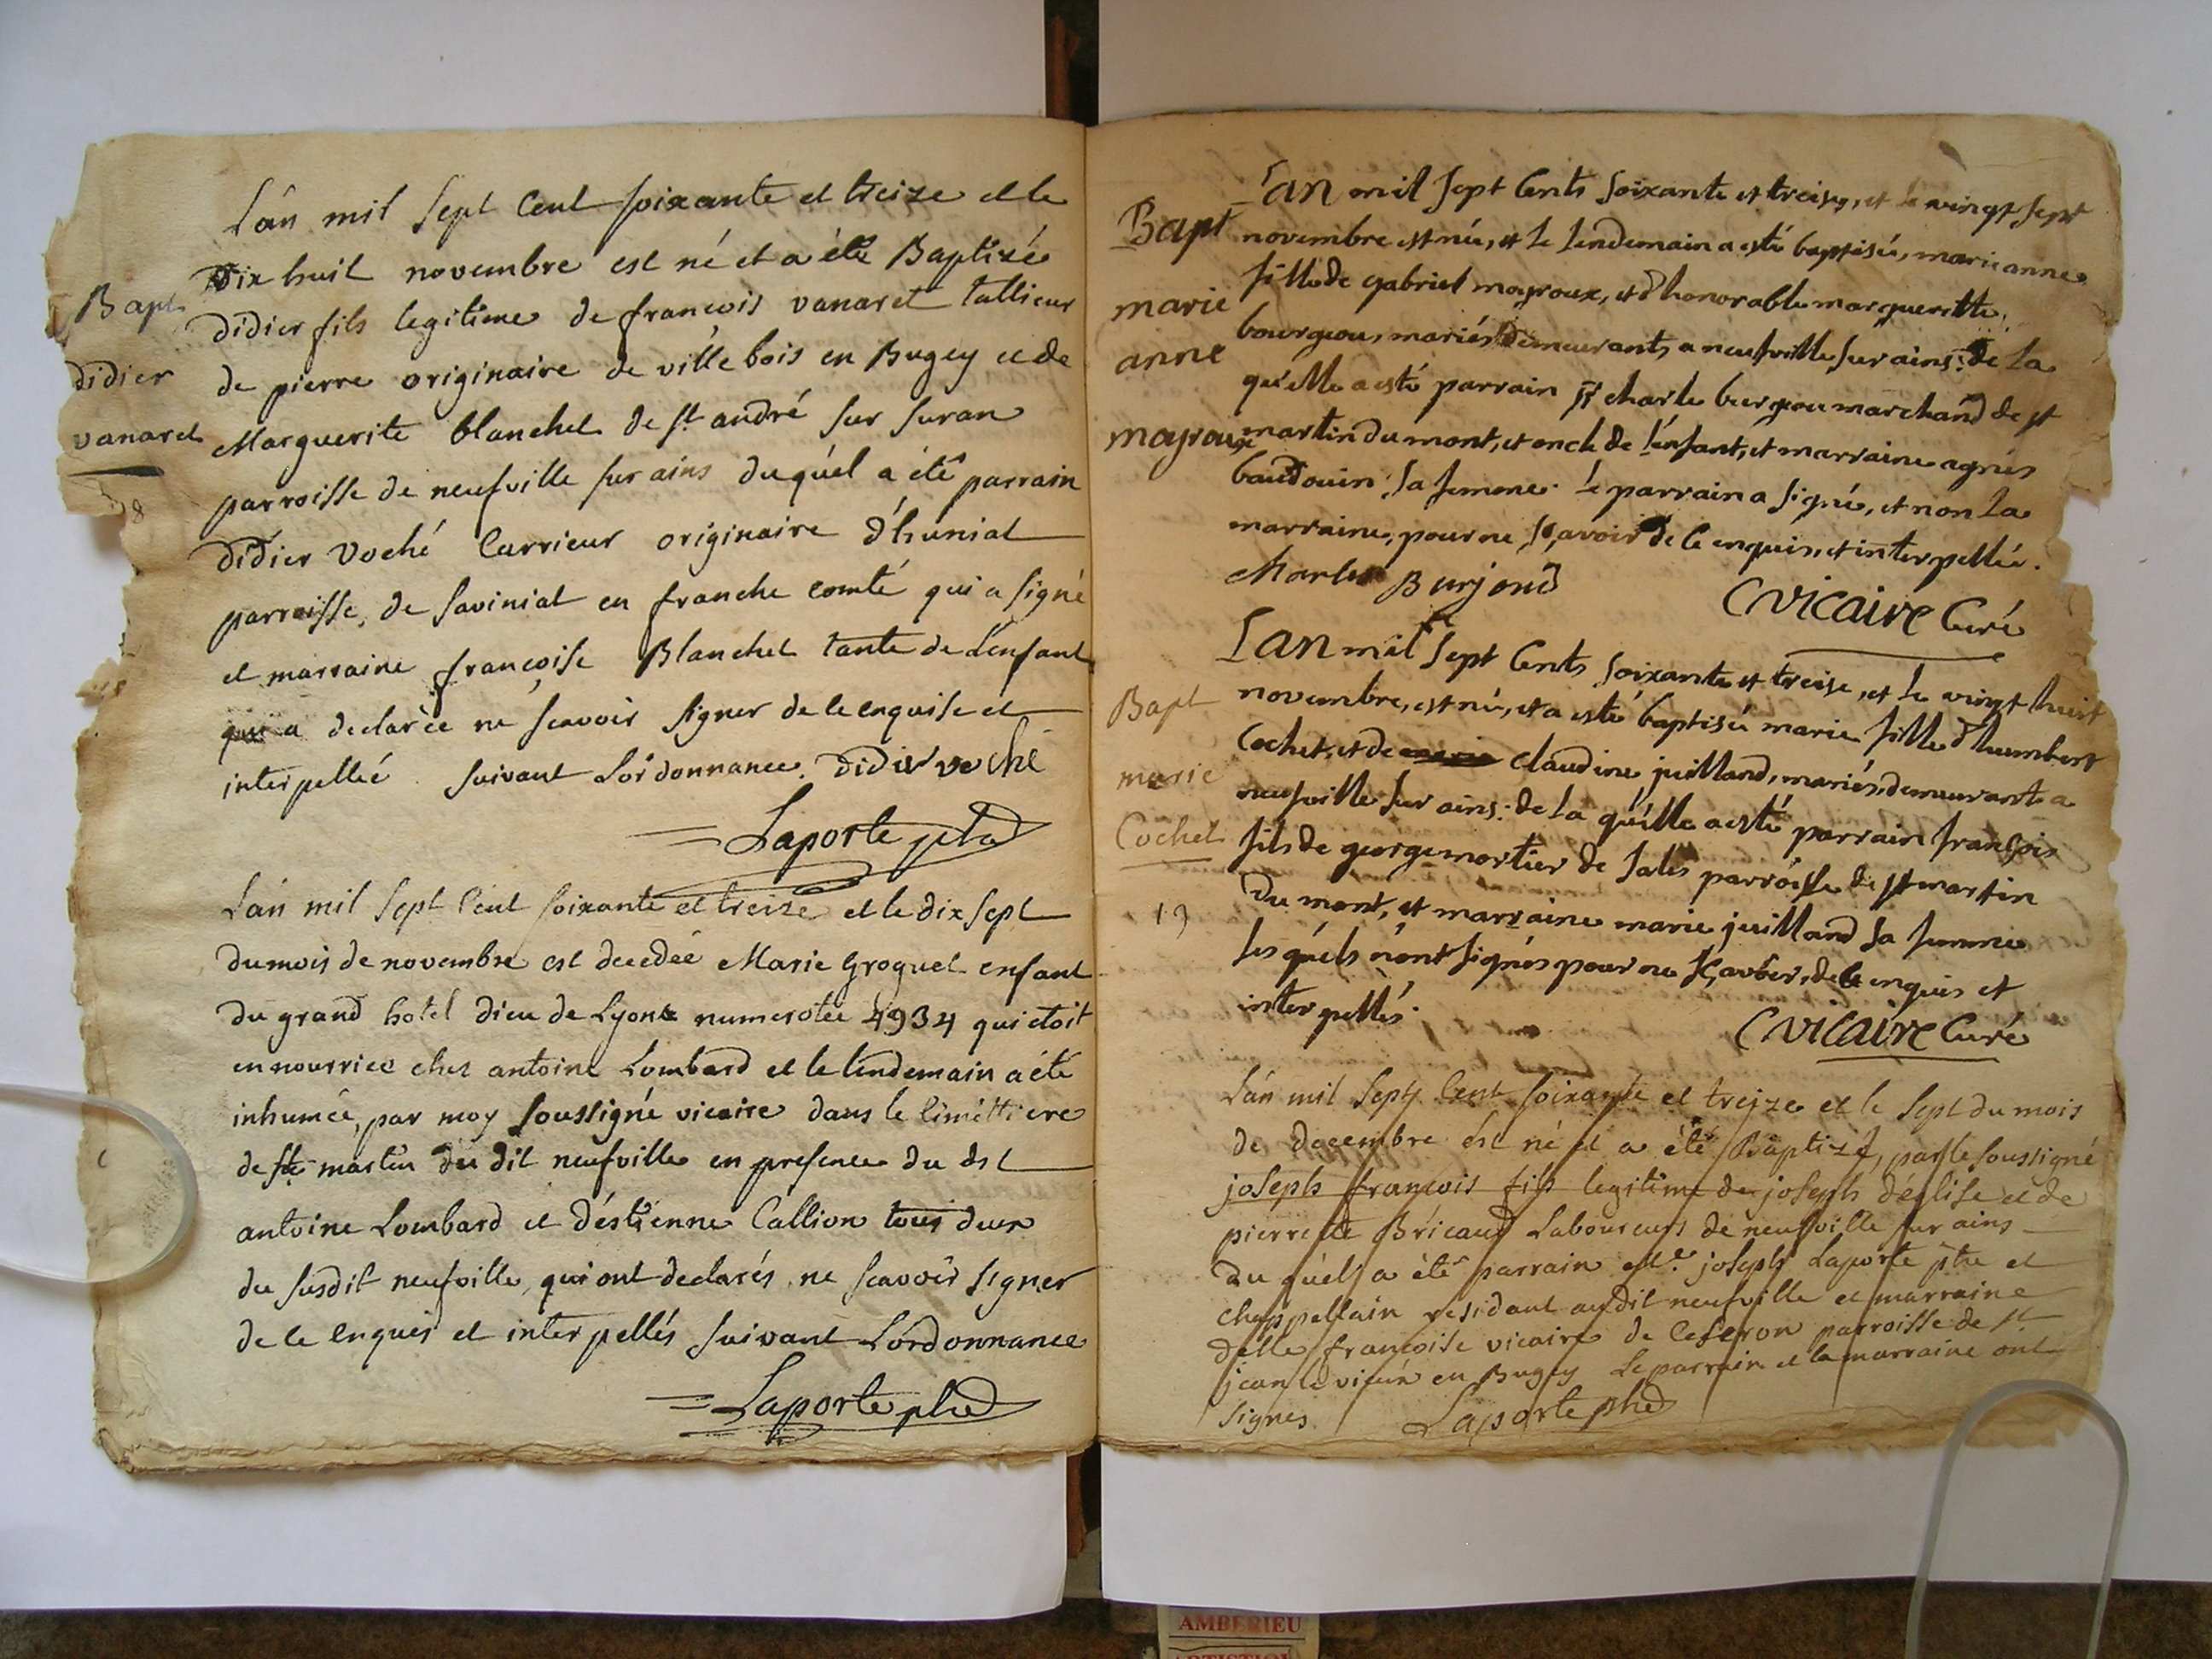 L'an mil sept cent soixante et treize et le
Bapt
dix huit novembre est né et a été Baptizé
didier fils legitime de francois vanaret tallieur
didier
de pierre originaire de ville bois en Bugey et de
vanaret
Marguerite blanchet de st andré sur suran
parroisse de neufville sur ains duquél a été parrain
18
didier Voché Carrieur originaire d'huniat
parroisse, de saviniat en franche comté qui a signé
et marraine françoise Blanchet tante de L'enfant
qui a declarée ne scavoir signer de ce enquise et
interpellée suivant Lórdonnance. Didier voché
Laporte ptre
L'an mil sept cent soixante et treize et le dix sept
du mois de novembre est decedée Marie Groguet enfant
du grand hotel dieu de Lyon numerotée 4934 qui etoit
en nourrice chez antoine Lombard et le lendemain a été
inhumée, par moy soussigné vicaire dans le cimettiere
de st martin du dit neufville en presence du dit
antoine Lombard et d'éstienne Callion tous deux
du susdit neufville, qui ont declarés ne scavoir signer
de ce enquis et interpellés suivant Lordonnance
Laporte ptre
Lan mil sept cents soixante et treise, et le vingt sept
Bapt
novembre est née, et le lendemain a esté baptisée, marie anne
fille de gabriel mayroux, et d'honorable margueritte
marie
bourgeou, mariés demeurants a neufville sur ains: de la
anne
qu'elle a esté parrain sr charle burgeou marchand de st
mayroux
martin du mont, et oncle de l'enfant, et marraine agnés
baudouin sa femme. le parrain a signé, et non la
marraine, pour ne sçavoir de ce enquis, et interpellée.
Charles Burjoud
C vicaire Curé
Lan mil sept cents soixante et treise, et le vingt huit
Bapt
novembre, est née, et a esté baptisée marie fille d'humbert
Cochet, et de claudine juilland, mariés, demeurants a
marie
neufville sur ains: de la qu'élle a esté parrain françois
Cochet
fils de george mortier de salés parroisse de st martin
19
du mont, et marraine marie juilland sa femme
les quéls n'ont signés pour ne sçavoir, de ce enquis et
interpellés.
C vicaire Curé
L'an mil sept cent soixante et treize et le sept du mois
de decembre est né et a été Baptizé, par le soussigné
joseph francois fils legitime de joseph d'église et de
pierrette Bricaud Laboureurs de neufville sur ains
du quél a été parrain joseph Laporte ptre et
chappellain residant au dit neufville et marraine
delle françoise vicaire de Ceseron parroisse de st
jean le vieux en Bugey Le parrain et la marraine ont
signés.
Laporte ptre
AMBERIEU